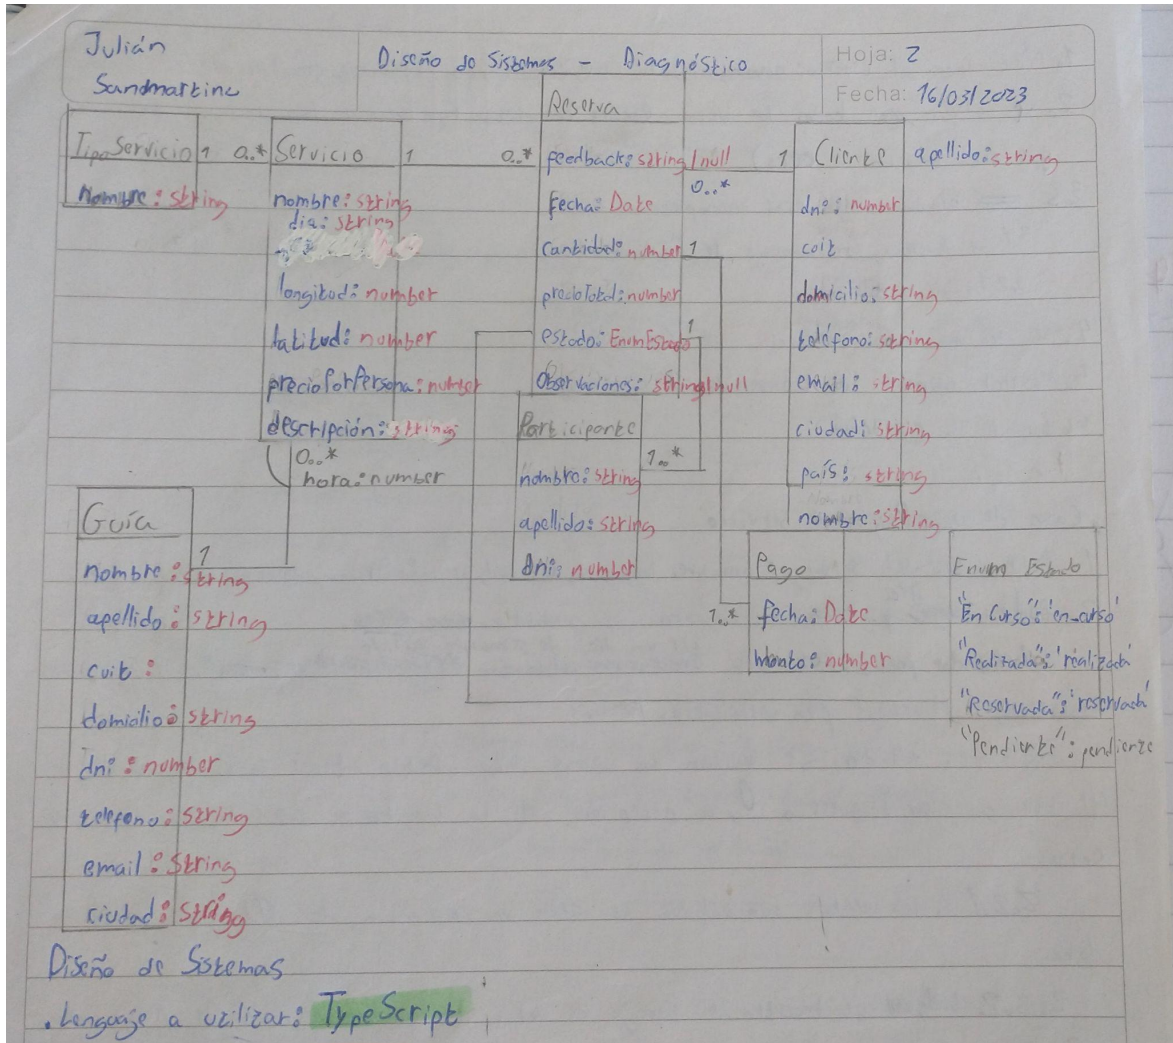 Julián
Sandmartino
Diseño de Sistemas - Diagnóstico
Hoja: 2
Fecha: 16/03/2023
TipoServicio
1
0..*
nombre: string
Servicio
1
0..*
nombre: string
dia: string
longitud: number
latitud: number
precioPorPersona: number
descripción: string
0..*
hora: number
1
Reserva
feedback: string/null
fecha: Date
cantidad: number
precioTotal: number
estado: EnumEstado
Observaciones: string/null
1
0..*
1
1
Cliente
apellido: string
dni: number
coit
domicilio: string
teléfono: string
email: string
ciudad: string
país: string
nombre: string
Participante
1..*
nombre: string
apellido: string
dni: number
Guía
nombre: string
apellido: string
cuit:
domicilio: string
dni: number
telefono: string
email: String
ciudad: string
Pago
1..*
fecha: Date
Monto: number
Enum Estado
"En Curso": 'en_curso'
"Realizada": 'realizada'
"Reservada": 'reservada'
"Pendiente": pendiente
Diseño de Sistemas
. Lenguaje a utilizar: TypeScript